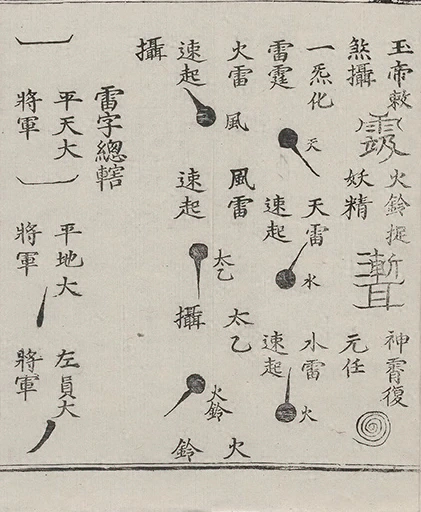 玉帝敕煞攝
火鈴捉妖精
神霄復元任
一炁化雷霆
天
天雷速起
水
水雷速起
火
火雷速起
風
風雷速起
太乙
太乙攝
火鈴
火鈴攝
雷字總轄
平天大將軍
平地大將軍
左員大將軍